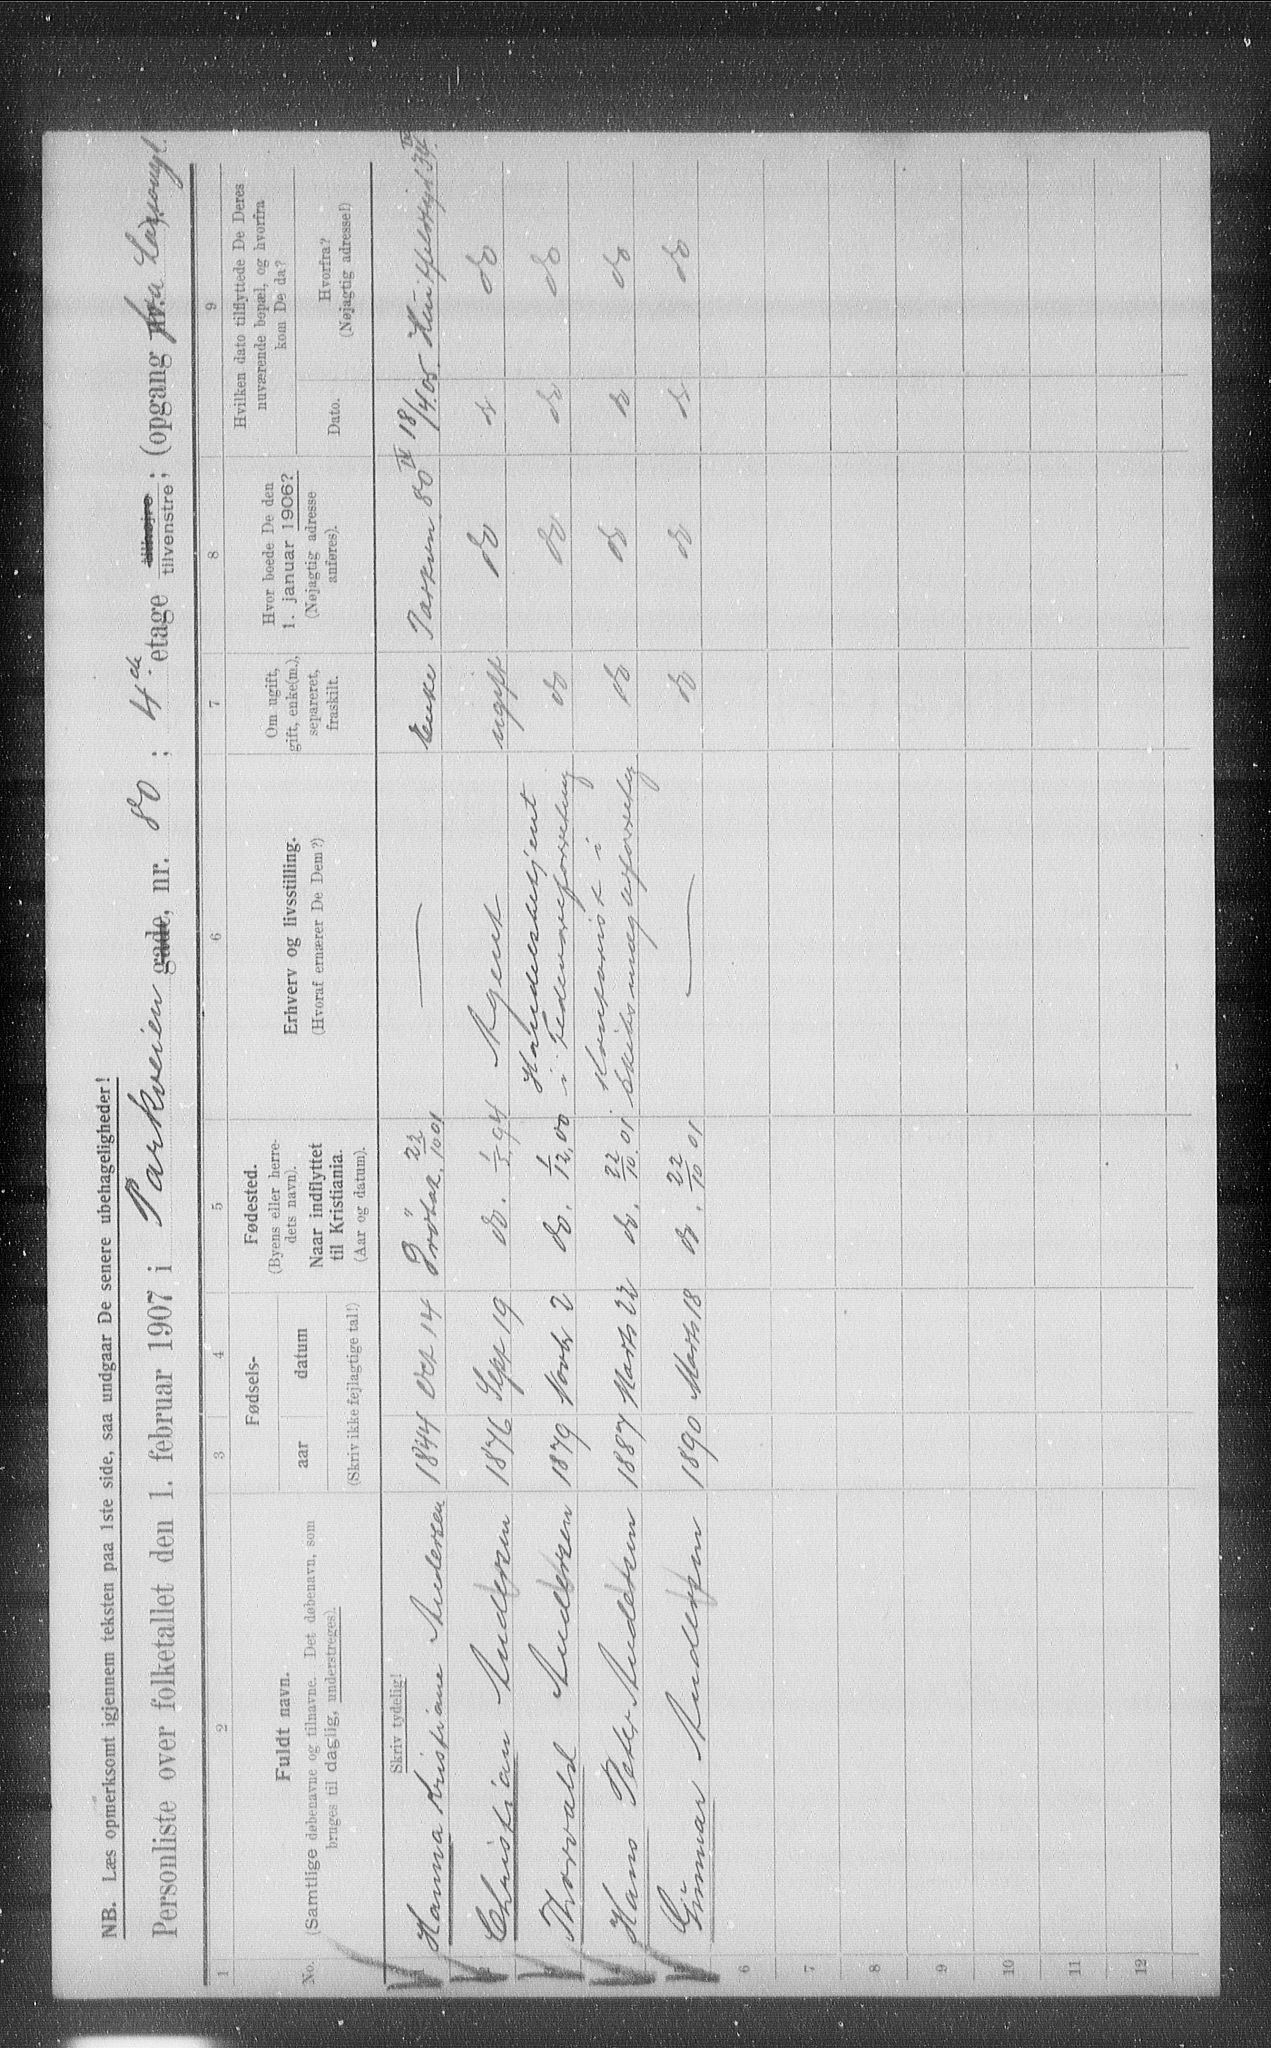 NB. Læs opmerksomt igjennem teksten paa 1ste side, saa undgaar De senere ubehageligheder!
Personliste over folketallet den 1. februar 1907 i Parkveien gade, nr. 80 ; 4de etage tilhøjre tilvenstre ; (opgang fra
1 2 3 4 5 6 7 8 9
No.
Fuldt navn.
(Samtlige døbenavne og tilnavne. Det døbenavn, som
bruges til daglig, understreges).
Fødsels-
aar datum
(Skriv ikke fejlagtige tal!)
Fødested.
(Byens eller herre-
dets navn).
Naar indflyttet
til Kristiania.
(Aar og datum).
Erhverv og livsstilling.
(Hvoraf ernærer De Dem?)
Om ugift,
gift, enke(m.),
separeret,
fraskilt.
Hvor boede De den
1. januar 1906?
(Nøjagtig adresse
anføres).
Hvilken dato tilflyttede De Deres
nuværende bopæl, og hvorfra
kom De da?
Dato.
Hvorfra?
(Nøjagtig adresse!)
Skriv tydelig!
1 Hanna Kristiane Andersen 1844 Oct 14 Drøbak 22/10 01 — Enke Parkvn 80 IV 18/4 05 Huitfeldtsgd 34 IV
2 Christian Andersen 1876 Sept 19 do. 1/5 94 Agent ugift do do do
3 Thorvald Andersen 1879 Novbr 2 do. 1/12 00 Handelsbetjent
i Fedevareforretning do do do do
4 Hans Peter Andersen 1887 Marts 22 do. 22/10 01 Kontorist i
Skibsmæglerforretng do do do do
5 Gunnar Andersen 1890 Marts 18 do. 22/10 01 — do do do do
6
7
8
9
10
11
12